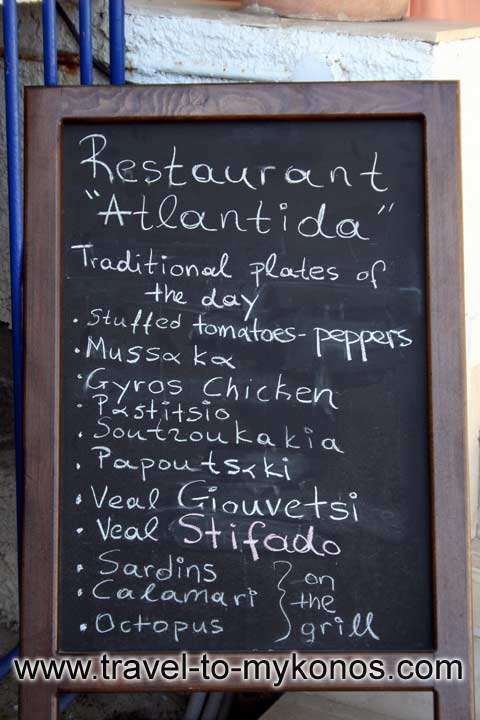 Restaurant
"Atlantida"
Traditional plates of
the day
· Stuffed tomatoes-peppers
· Mussaka
· Gyros Chicken
· Pastitsio
· Soutzoukakia
· Papoutsaki
· Veal Giouvetsi
· Veal Stifado
· Sardins
· Calamari
· Octopus
} on
the
grill
www.travel-to-mykonos.com